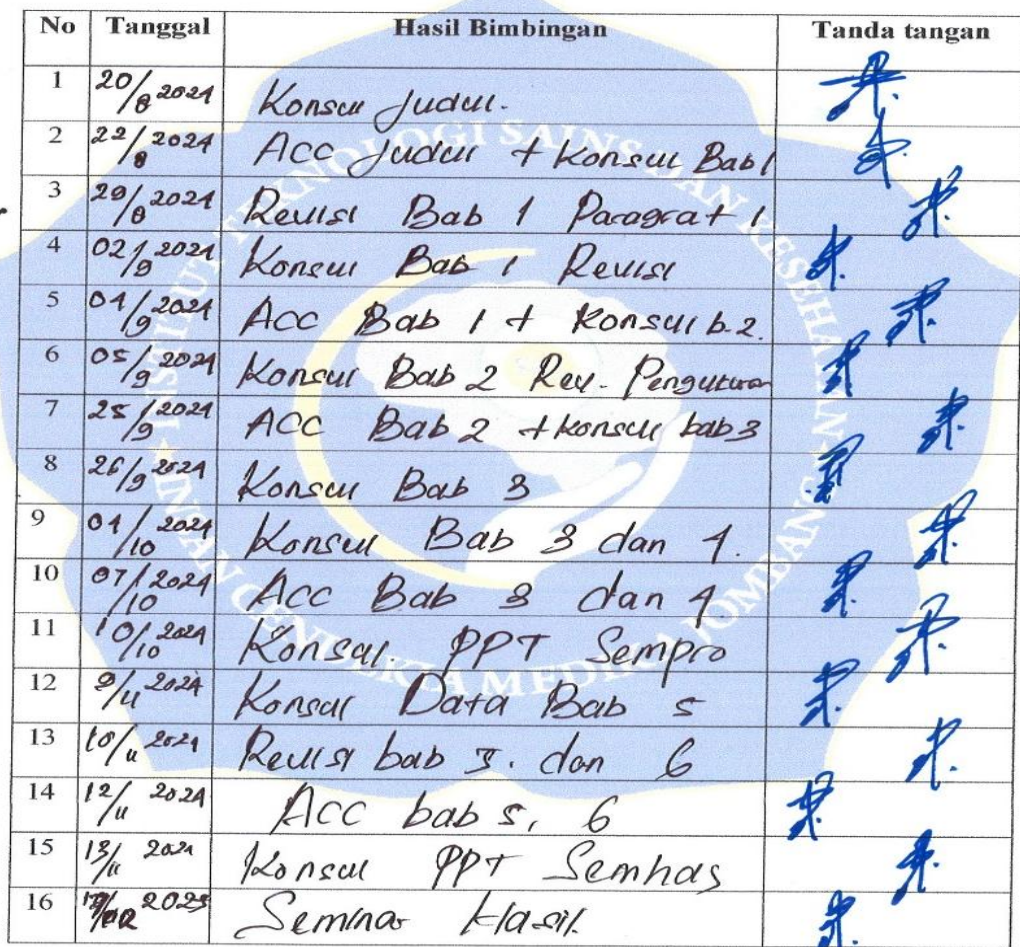 No Tanggal Hasil Bimbingan Tanda tangan
1 20/8 2024 Konsul Judul.
2 22/8 2024 Acc Judul + Konsul Bab 1
3 29/8 2024 Revisi Bab 1 Paragraf 1
4 02/9 2024 Konsul Bab 1 Revisi
5 04/9 2024 Acc Bab 1 + Konsul b.2.
6 05/9 2024 Konsul Bab 2 Rev. Pengukuran
7 25/9 2024 Acc Bab 2 + konsul bab 3
8 26/9 2024 Konsul Bab 3
9 04/10 2024 Konsul Bab 3 dan 4.
10 07/10 2024 Acc Bab 3 dan 4
11 10/10 2024 Konsul. PPT Sempro
12 9/11 2024 Konsul Data Bab 5
13 10/11 2024 Revisi bab 5. dan 6
14 12/11 2024 Acc bab 5, 6
15 13/11 2024 Konsul PPT Semhas
16 2025 Seminar Hasil.
INSTITUT TEKNOLOGI SAINS DAN KESEHATAN
INSAN CENDEKIA MEDIKA JOMBANG